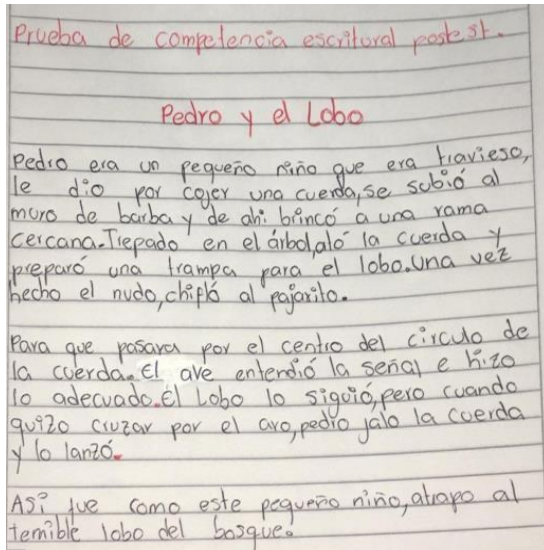 Prueba de competencia escritural postest.
Pedro y el Lobo
Pedro era un pequeño niño que era travieso,
le dio por cojer una cuerda, se subió al
muro de barba y de ahi brincó a una rama
cercana. Trepado en el árbol, ató la cuerda y
preparó una trampa para el lobo. Una vez
hecho el nudo, chifló al pajarito.
Para que pasara por el centro del circulo de
la cuerda. El ave entendió la señal e hizo
lo adecuado. El Lobo lo siguió, pero cuando
quizo cruzar por el aro, pedro jalo la cuerda
y lo lanzó.
ASi fue como este pequeño niño, atrapo al
temible lobo del bosque.